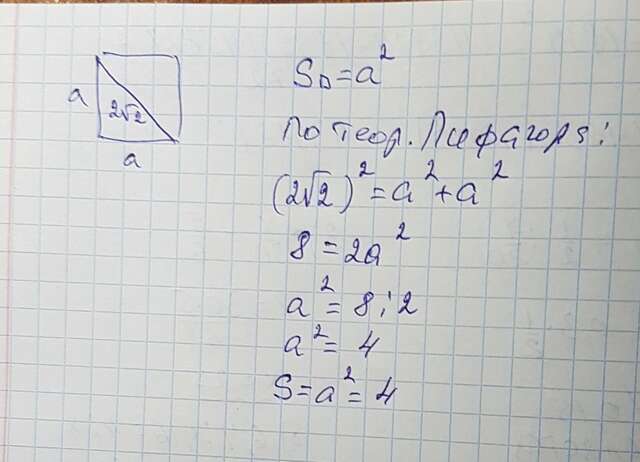 a
2√2
a
S□ = a²
По теор. Пифагора:
(2√2)² = a² + a²
8 = 2a²
a² = 8 : 2
a² = 4
S = a² = 4